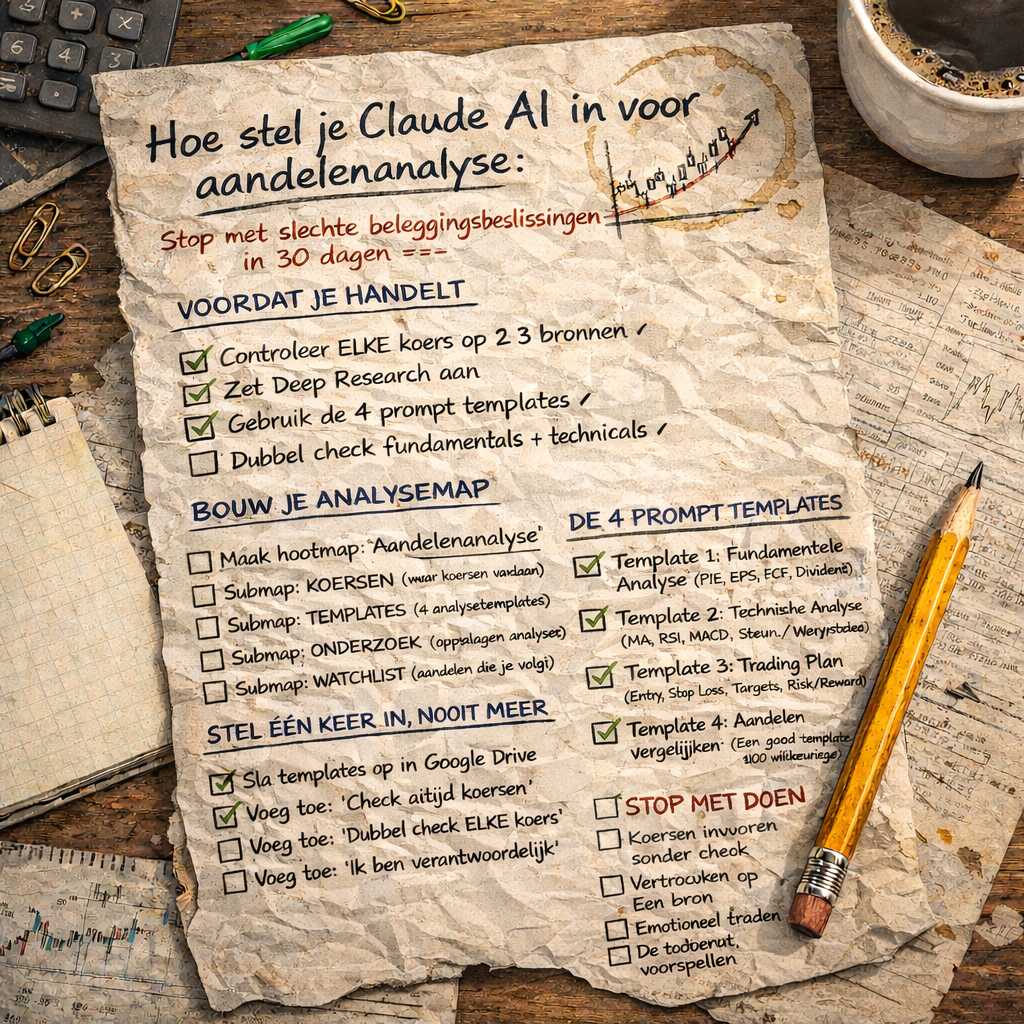 Hoe stel je Claude AI in voor
aandelenanalyse:
Stop met slechte beleggingsbeslissingen
in 30 dagen ===
VOORDAT JE HANDELT
Controleer ELKE koers op 2 3 bronnen
Zet Deep Research aan
Gebruik de 4 prompt templates
Dubbel check fundamentals + technicals
BOUW JE ANALYSEMAP
Maak hootmap: 'Aandelenanalyse'
Submap: KOERSEN (waar koersen vandaan)
Submap: TEMPLATES (4 analysetemplates)
Submap: ONDERZOEK (oppslagen analyses)
Submap: WATCHLIST (aandelen die je volgi)
STEL ÉÉN KEER IN, NOOIT MEER
Sla templates op in Google Drive
Voeg toe: 'Check aitijd koersen'
Voeg toe: 'Dubbel check ELKE koers'
Voeg toe: 'Ik ben verantwoordelijk'
DE 4 PROMPT TEMPLATES
Template 1: Fundamentele
Analyse (PIE, EPS, FCF, Dividend)
Template 2: Technische Analyse
(MA, RSI, MACD, Steun./
Template 3: Trading Plan
(Entry, Stop Loss, Targets, Risk/Reward)
Template 4: Aandelen
vergelijken (Een good template
STOP MET DOEN
Koersen invuoren
sonder cheok
Vertrocuken op
Een bron
Emotioneel traden
De
voorspellen